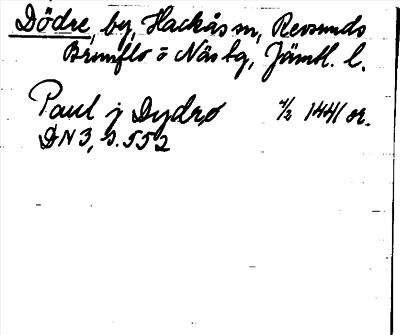 Dödre, by, Hackås sn, Revsunds
Brunflo o Näs tg, Jämtl. l.
Paul j Dydrø 4/2 1441 or.
DN 3, s. 552